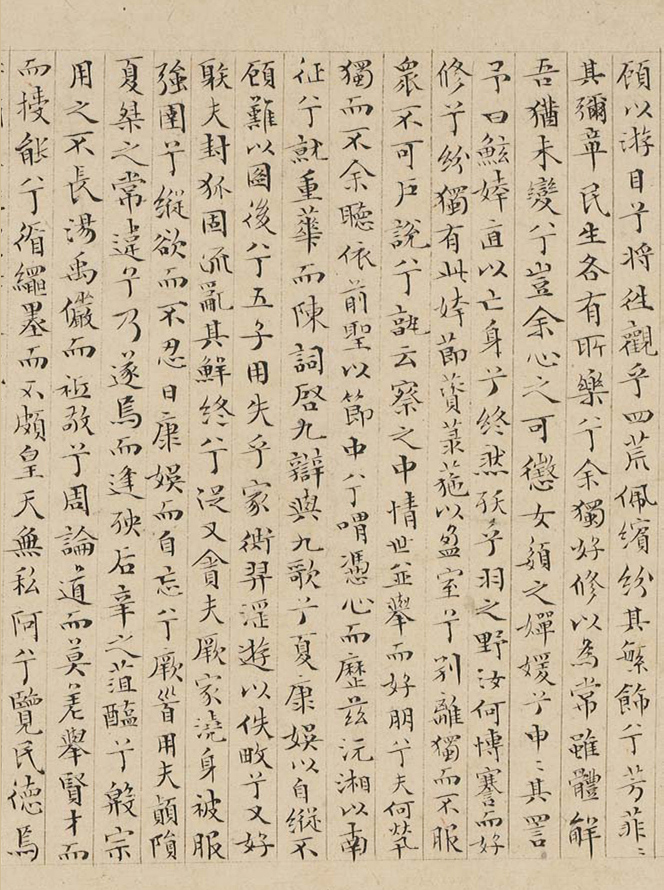 顧以游目兮將往觀乎四荒佩繽紛其繁飾兮芳菲〻
其彌章民生各有所樂兮余獨好修以為常雖體解
吾猶未變兮豈余心之可懲女嬃之嬋媛兮申〻其詈
予曰鮌婞直以亡身兮終然殀乎羽之野汝何博謇而好
修兮紛獨有此姱節薋菉葹以盈室兮判離獨而不服
衆不可戶說兮孰云察之中情世並舉而好朋兮夫何煢
獨而不余聽依前聖以節中兮喟憑心而歷茲沅湘以南
征兮就重華而陳詞啓九辯與九歌兮夏康娛以自縱不
顧難以圖後兮五子用失乎家衖羿淫遊以佚畋兮又好
射夫封狐固流亂其鮮終兮浞又貪夫厥家澆身被服
強圉兮縱欲而不忍日康娛而自忘兮厥首用夫顛隕
夏桀之常違兮乃遂焉而逢殃后辛之菹醢兮殷宗
用之不長湯禹儼而祗敬兮周論道而莫差舉賢才而
而授能兮循繩墨而不頗皇天無私阿兮覽民德焉